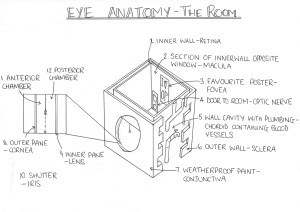 EYE ANATOMY - THE ROOM
1. INNER WALL - RETINA
2. SECTION OF INNERWALL OPPOSITE
WINDOW - MACULA
3. FAVOURITE POSTER -
FOVEA
4. DOOR TO ROOM - OPTIC NERVE
5. WALL CAVITY WITH PLUMBING -
CHOROID CONTAINING BLOOD
VESSELS
6. OUTER WALL - SCLERA
7. WEATHERPROOF PAINT -
CONJUNCTIVA
12. POSTERIOR
CHAMBER
11. ANTERIOR
CHAMBER
8. OUTER PANE
- CORNEA
9. INNER PANE
- LENS
10. SHUTTER
- IRIS